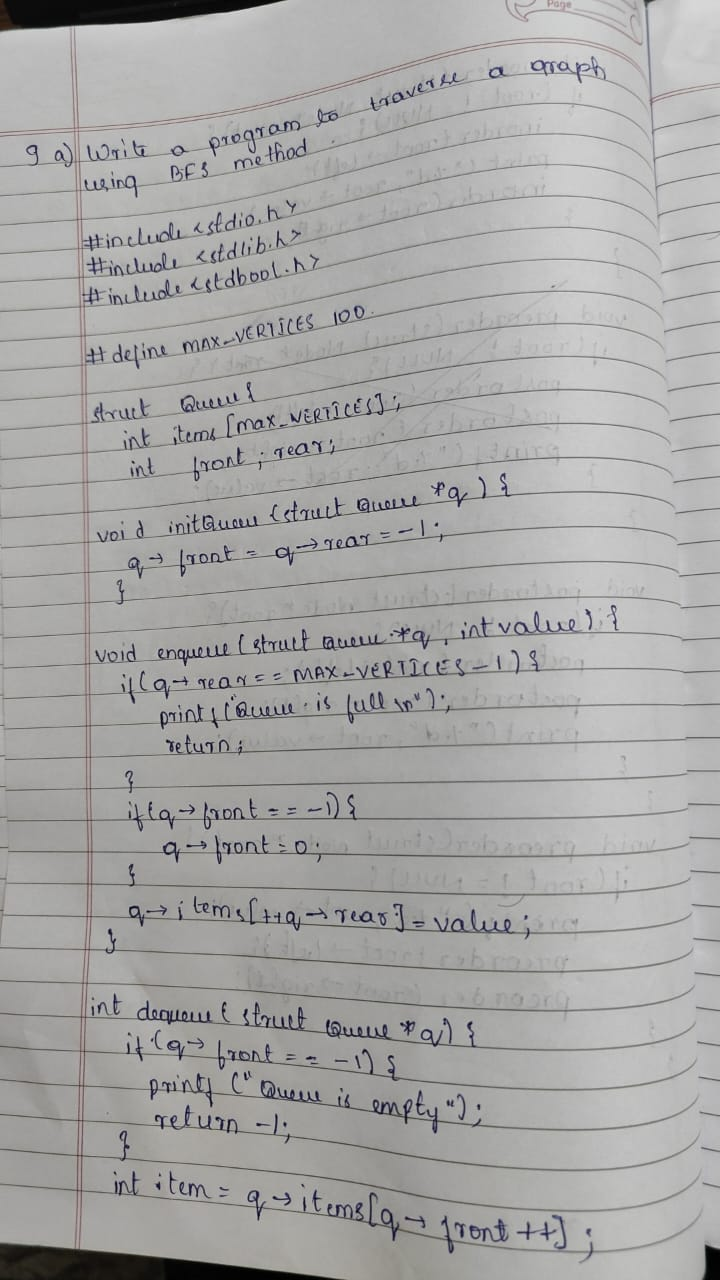 Page
9 a) Write a program to traverse a graph
using BFS method.
#include <stdio.h>
#include <stdlib.h>
#include <stdbool.h>
# define MAX_VERTICES 100.
struct Queue {
int items [max_VERTICES];
int front; rear;
void initQueue (struct Queue *q) {
q→ front = q→rear = -1;
}
void enqueue (struct Queue *q, int value) {
if (q→ rear == MAX_VERTICES-1) {
printf ("Queue is full \n");
return;
}
if (q→ front == -1) {
q→ front = 0;
}
q→ items [++q→ rear] = value;
}
int dequeue (struct Queue *q) {
if (q→ front == -1) {
printf ("Queue is empty");
return -1;
}
int item = q→ items[q→ front ++];